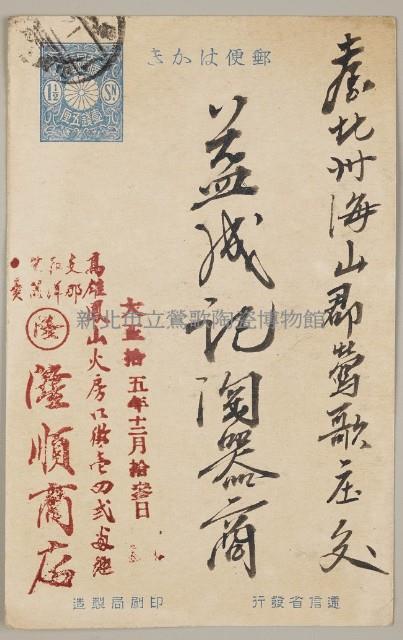 郵便はがき
1½ SN.
壹錢五厘
臺北州海山郡鶯歌庄交
益成記陶器商
大正拾五年十二月拾參日
高雄鳳山火房口供壱四弐
支那
瀅順商店
新北市立鶯歌陶瓷博物館
遞信省發行
印刷局製造